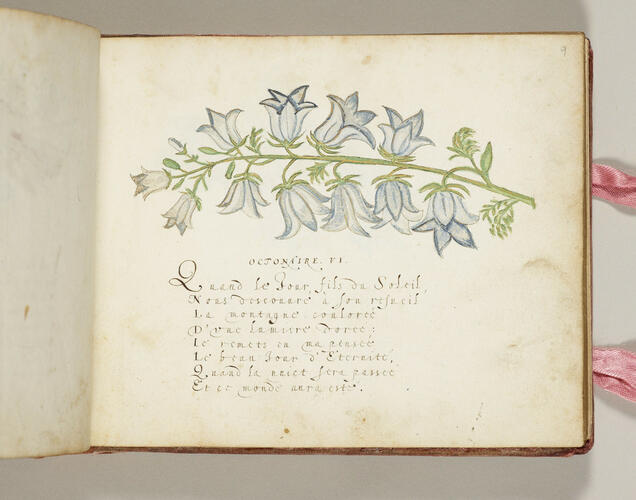 9
OCTONAIRE. VI.
Quand le Jour, fils du Soleil,
Nous descouure à son resueil
La montagne couloree
D'vne lumiere doree:
Ie remets en ma pensee
Le beau Jour d'Eternité,
Quand la nuict sera passee
Et ce monde aura esté.